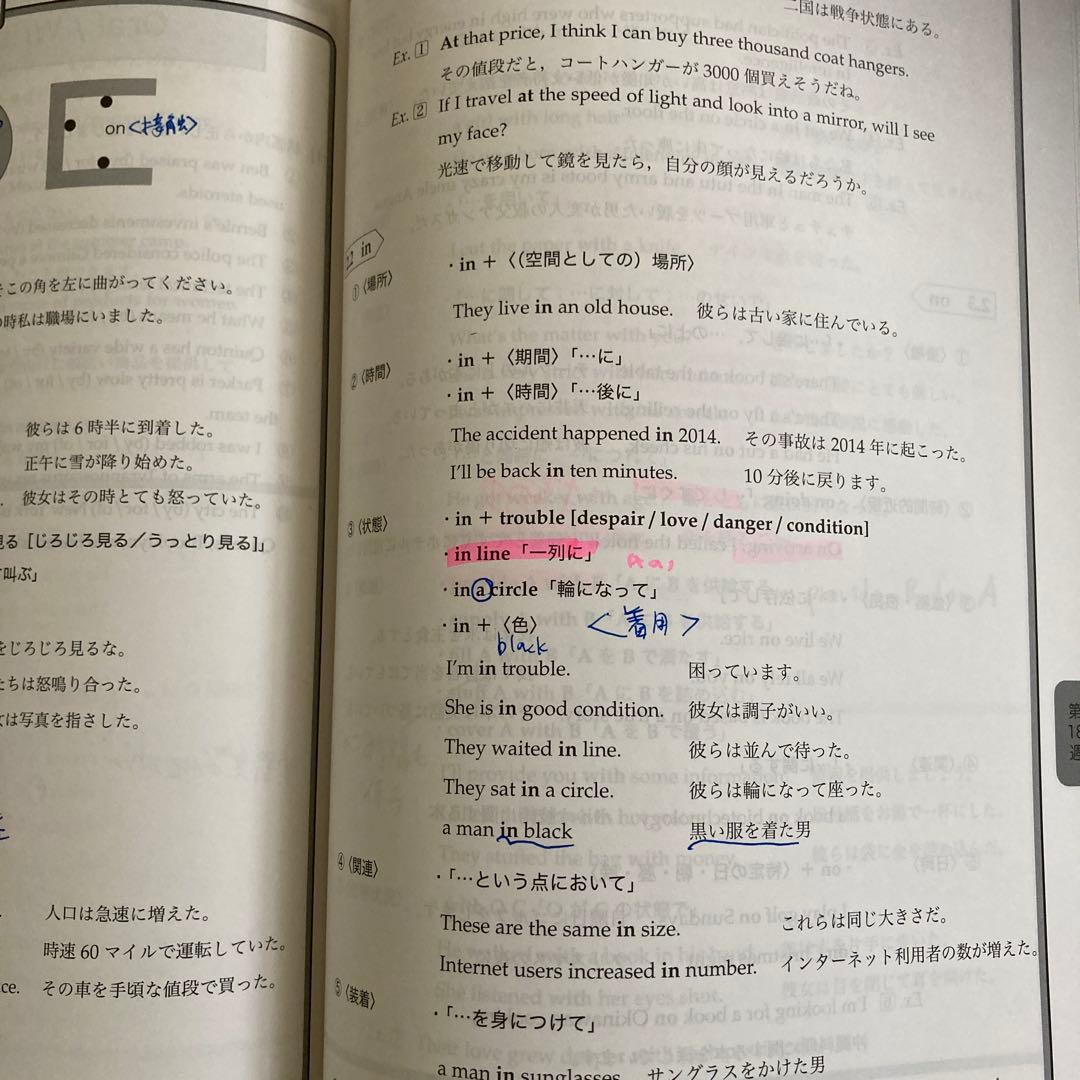 on〈接触〉
この角を左に曲がってください。
時私は職場にいました。
彼らは6時半に到着した。
正午に雪が降り始めた。
彼女はその時とても怒っていた。
見る［じろじろ見る／うっとり見る］」
叫ぶ」
をじろじろ見るな。
たちは怒鳴り合った。
は写真を指さした。
人口は急速に増えた。
時速60マイルで運転していた。
ce. その車を手頃な値段で買った。
二国は戦争状態にある。
Ex. 1 At that price, I think I can buy three thousand coat hangers.
その値段だと，コートハンガーが3000個買えそうだね。
Ex. 2 If I travel at the speed of light and look into a mirror, will I see
my face?
光速で移動して鏡を見たら，自分の顔が見えるだろうか。
2.2 in
①〈場所〉 ・in＋〈（空間としての）場所〉
They live in an old house. 彼らは古い家に住んでいる。
②〈時間〉 ・in＋〈期間〉「…に」
・in＋〈時間〉「…後に」
The accident happened in 2014. その事故は2014年に起こった。
I'll be back in ten minutes. 10分後に戻ります。
③〈状態〉 ・in + trouble [despair / love / danger / condition]
・in line「一列に」
・in a circle「輪になって」
・in＋〈色〉 〈着用〉
black
I'm in trouble. 困っています。
She is in good condition. 彼女は調子がいい。
They waited in line. 彼らは並んで待った。
They sat in a circle. 彼らは輪になって座った。
a man in black 黒い服を着た男
④〈関連〉 ・「…という点において」
These are the same in size. これらは同じ大きさだ。
Internet users increased in number. インターネット利用者の数が増えた。
⑤〈装着〉 ・「…を身につけて」
a man in sunglasses サングラスをかけた男
第
18
週